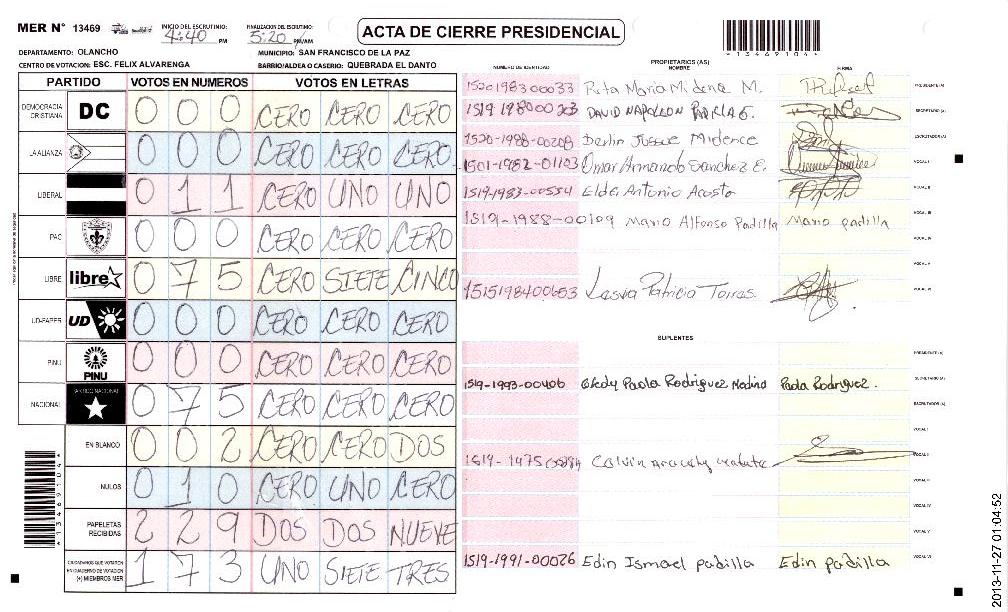 MER N° 13469
INICIO DEL ESCRUTINIO: 4:40 PM
FINALIZACION DEL ESCRUTINIO: 5:20 PM/AM
ACTA DE CIERRE PRESIDENCIAL
*13469104*
DEPARTAMENTO: OLANCHO
MUNICIPIO: SAN FRANCISCO DE LA PAZ
CENTRO DE VOTACION: ESC. FELIX ALVARENGA
BARRIO/ALDEA O CASERIO: QUEBRADA EL DANTO
PARTIDO VOTOS EN NUMEROS VOTOS EN LETRAS
DEMOCRACIA CRISTIANA DC 0 0 0 CERO CERO CERO
LA ALIANZA 0 0 0 CERO CERO CERO
LIBERAL 0 1 1 CERO UNO UNO
PAC 0 0 0 CERO CERO CERO
LIBRE libre 0 7 5 CERO SIETE CINCO
UD-FAPER UD 0 0 0 CERO CERO CERO
PINU PINU 0 0 0 CERO CERO CERO
NACIONAL PARTIDO NACIONAL 0 7 5 CERO CERO CERO
EN BLANCO 0 0 2 CERO CERO DOS
NULOS 0 1 0 CERO UNO CERO
PAPELETAS RECIBIDAS 2 2 9 DOS DOS NUEVE
CIUDADANOS QUE VOTARON EN CUADERNO DE VOTACION (+) MIEMBROS MER 1 7 3 UNO SIETE TRES
*13469104*
PROPIETARIOS (AS)
NUMERO DE IDENTIDAD NOMBRE FIRMA
1520198300033 Rita Maria M. PRESIDENTE (A)
1519 198000 DAVID NAPOLEON PADILLA SECRETARIO (A)
1520-1988-00209 Darlin Josue Midence ESCRUTADOR (A)
1501-1982-01103 Omar Armando Sanchez E. VOCAL I
1519-1983-00554 Elda Antonio Acosto VOCAL II
VOCAL III
1519-1988-00109 Mario Alfonso Padilla Mario padilla
VOCAL IV
VOCAL V
1515198400653 Lesvia Patricia Torres. VOCAL VI
SUPLENTES
PRESIDENTE (A)
1519-1993-00406 Paola Rodriguez Medina Paola Rodriguez. SECRETARIO (A)
ESCRUTADOR (A)
VOCAL I
1519-1975 VOCAL II
VOCAL III
VOCAL IV
VOCAL V
1519-1991-00026 Edin Ismael padilla Edin padilla VOCAL VI
2013-11-27 01:04:52